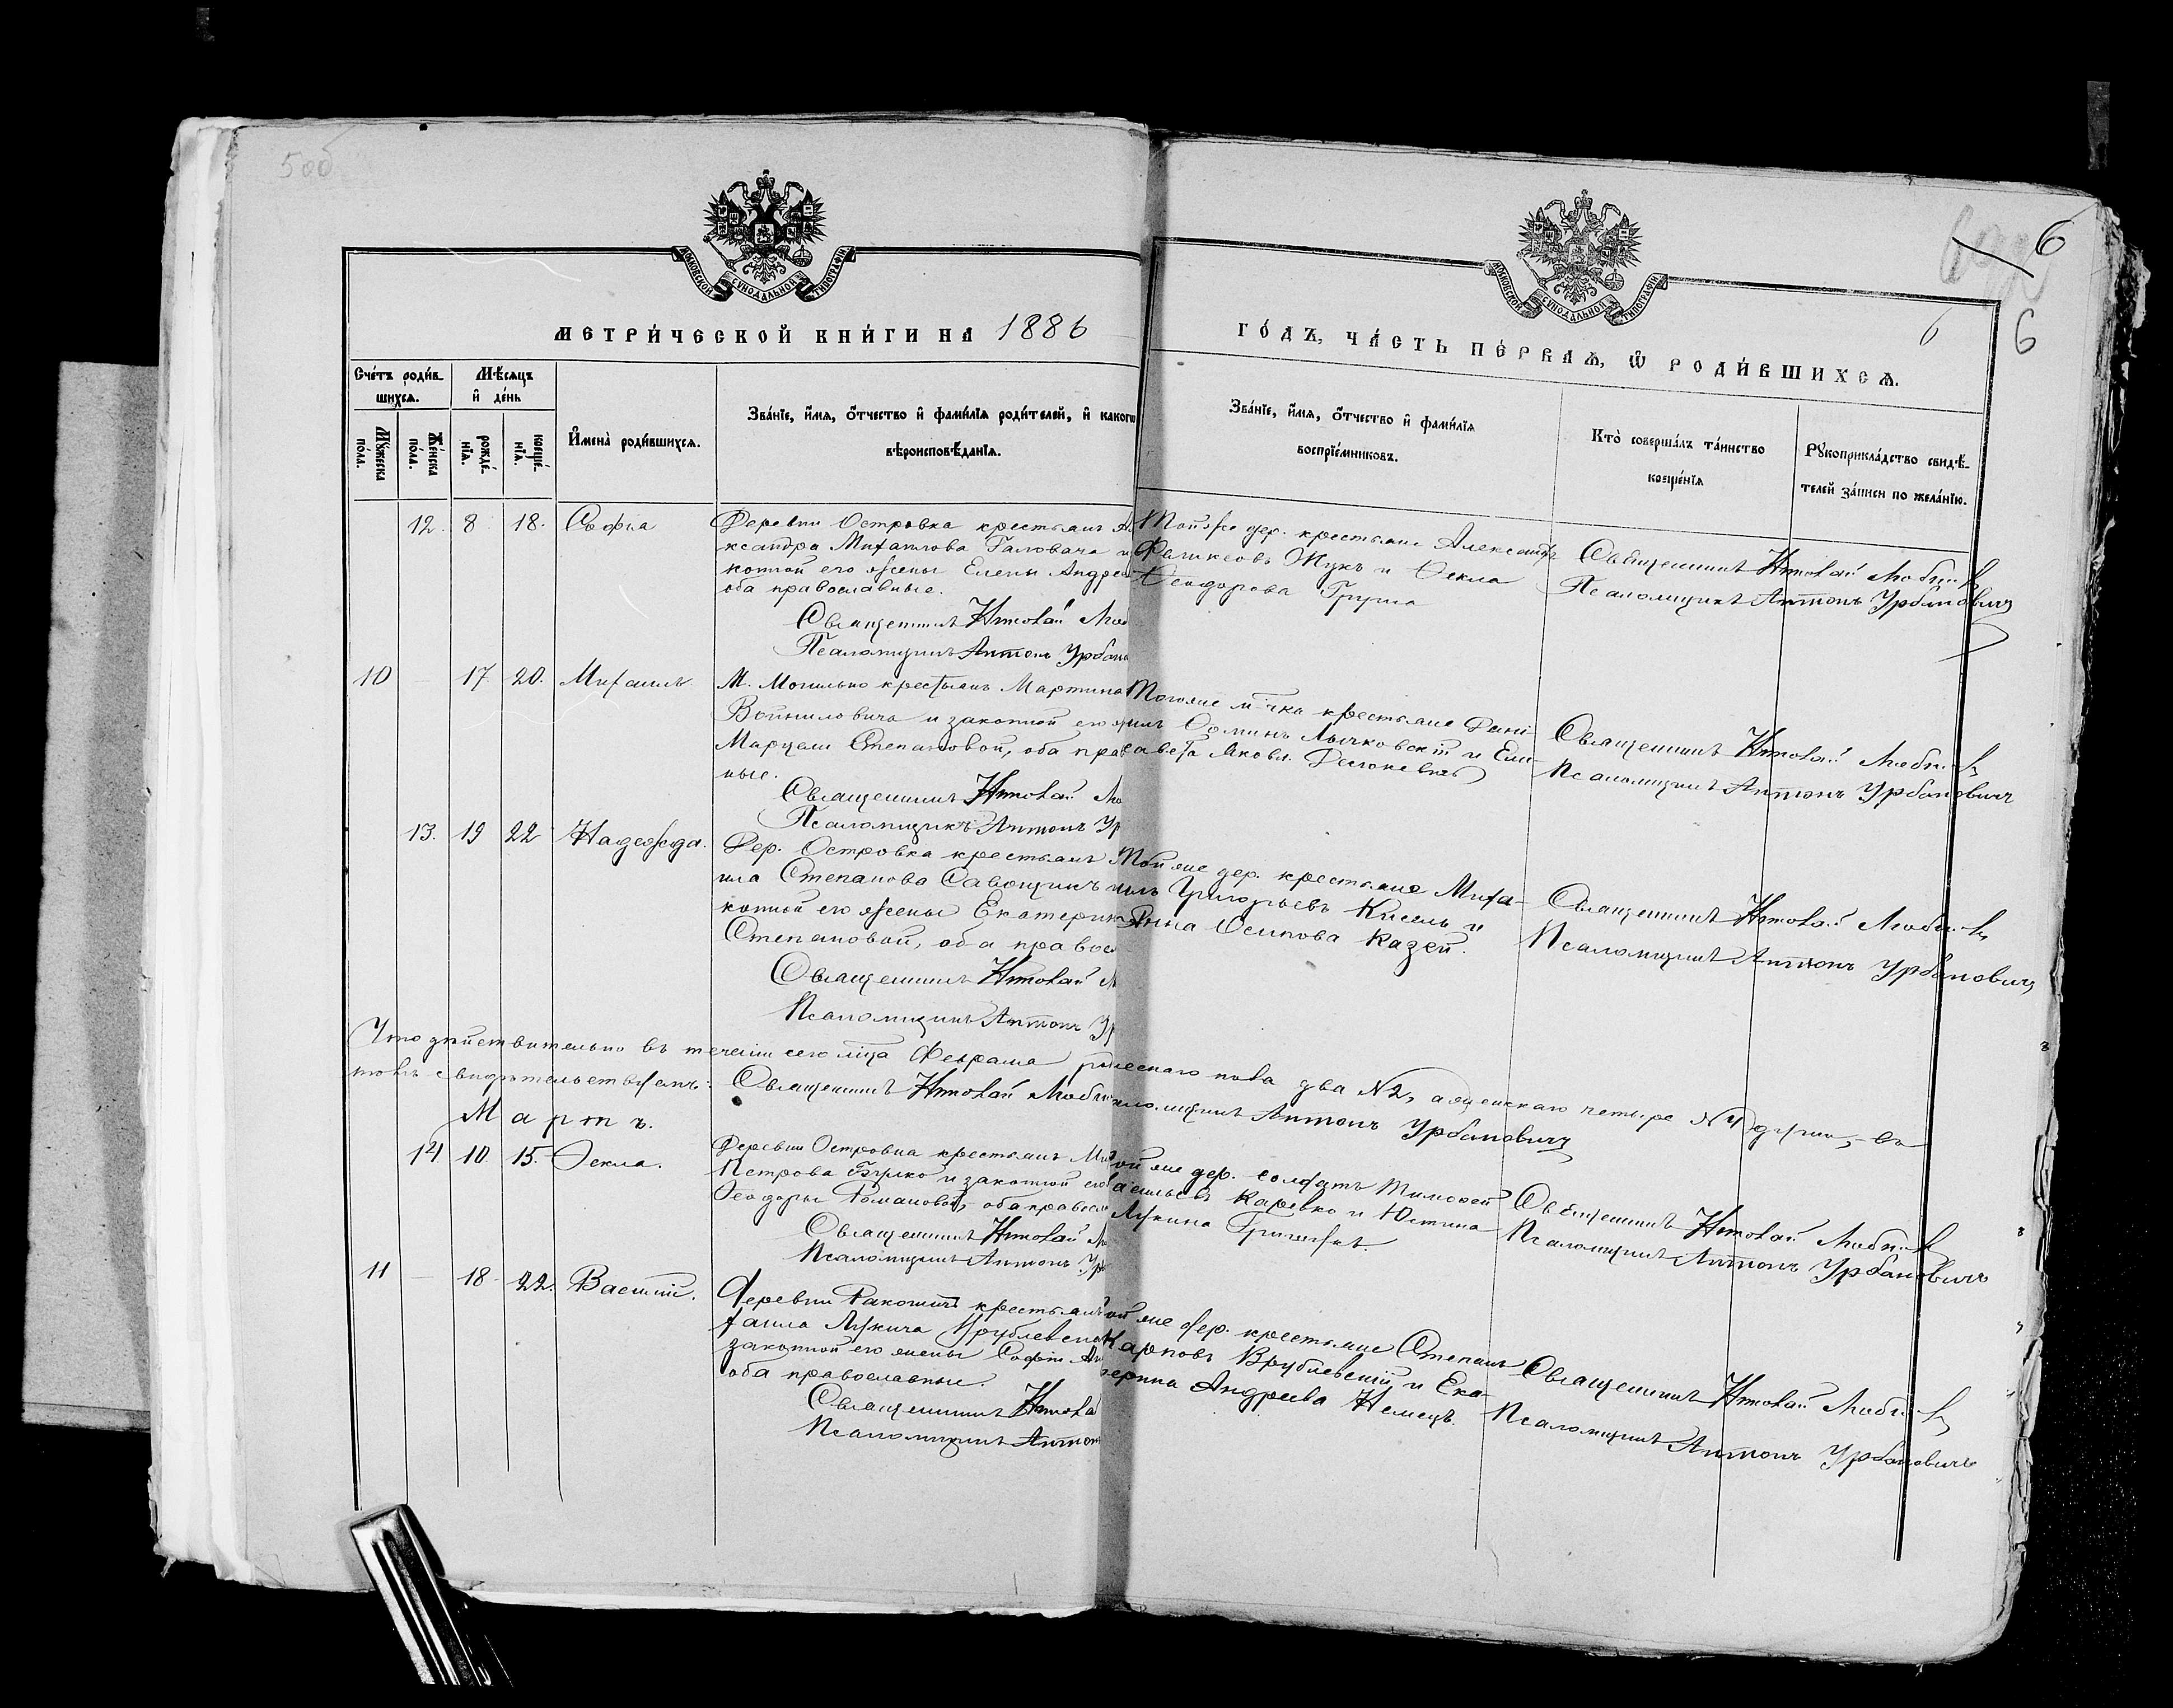 5об
6
6
6
МОСКОВСКОЙ СУНОДАЛЬНОЙ ТИПОГРАФІИ
МОСКОВСКОЙ СУНОДАЛЬНОЙ ТИПОГРАФІИ
МЕТРИ́ЧЕСКОЙ КНИ́ГИ НА 1886
ГО́ДЪ, ЧА́СТЬ ПЕ́РВАѦ, Ѡ҆ РОДИ́ВШИХСѦ.
Сче́тъ роди́в-
шихсѧ.
Мѣ́сяцъ
и҆ де́нь
Мꙋ́жеска
по́ла.
Же́нска
по́ла.
рожде́-
нїѧ.
креще́-
нїѧ.
И҆мена̀ роди́вшихсѧ.
Зва́нїе, и҆́мѧ, ѻ҆́тчество и҆ фами́лїѧ роди́телей, и҆ какогѡ
вѣроисповѣ́данїѧ.
Зва́нїе, и҆́мѧ, ѻ҆́тчество и҆ фами́лїѧ
воспрїе́мниковъ.
Кто̀ соверша́лъ та́инство
креще́нїѧ
Рꙋкоприкла́дство свидѣ́-
телей за́писи по жела́нїю.
12. 8 18. Софiа
Деревни Островка крестьянъ Але
ксандра Михаилова Головача и
конной его жены Елены Андре
оба православные.
Священникъ Николай
Псаломщикъ Антонъ Урбано
Той же дер. крестьяне Александръ
Феликсовъ Жукъ и Ѳекла
Ѳеодорова Груша
Священникъ Николай
Псаломщикъ Антонъ Урбановичъ
10 — 17. 20. Михаилъ.
М. Могильно крестьянъ Мартина
Войниловича и законной его ж
Марцели Степановой, оба прав
ные.
Священникъ Николай
Псаломщикъ Антонъ Ур
Тогоже м-чка крестьяне Дані
илъ Ѳоминъ Лычковскій и Ели-
завета Яковл.
Священникъ Николай
Псаломщикъ Антонъ Урбановичъ
13. 19 22 Надежда.
Дер. Островка крестьянъ
ила Степанова Савощикъ
конной его жены Екатерин
Степановой, оба правос
Священникъ Николай
Псаломщикъ Антонъ Ур
Той же дер. крестьяне Миха-
илъ Григорьевъ Кисель и
Анна Осипова Казей.
Священникъ Николай
Псаломщикъ Антонъ Урбановичъ
Что дѣйствительно въ теченіи сего м-ца Февраля мужескаго пола два №2, а женскаго четыре №4 души, — въ
томъ свидѣтельствуемъ: Священникъ Николай Псаломщикъ Антонъ Урбановичъ
Мартъ.
14 10. 15. Ѳекла.
Деревни Островка крестьянъ Ми
Петрова Бурко и законной его
Ѳеодоры Романовой, оба правосл
Священникъ Николай
Псаломщикъ Антонъ Ур
Той же дер. солдатъ Тимоѳей
Васильевъ Каревко и Юстина
Лукина
Священникъ Николай
Псаломщикъ Антонъ Урбановичъ
11 — 18. 22. Василій.
Деревни крестьянъ
хаила Лукича Врублевска
законной его жены Софіи
оба православные.
Священникъ Никола
Псаломщикъ Антон
Той же дер. крестьяне Степанъ
Карповъ Врублевскій и Ека-
терина Андреева Немецъ.
Священникъ Николай
Псаломщикъ Антонъ Урбановичъ